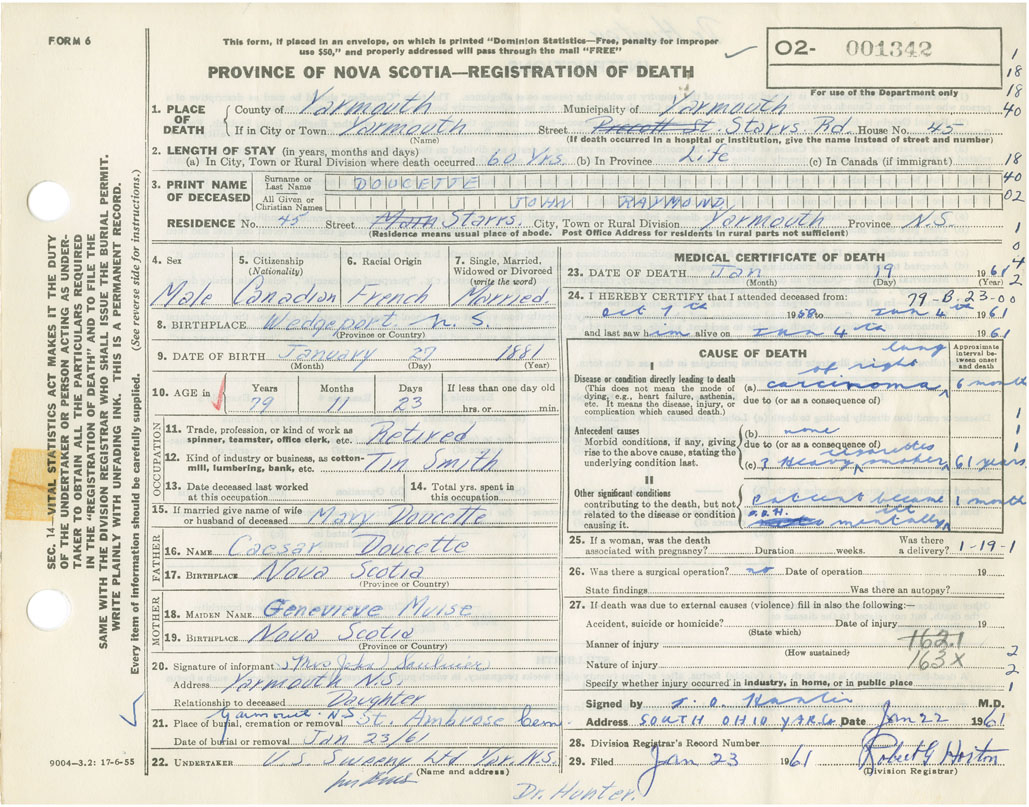 FORM 6
This form, if placed in an envelope, on which is printed "Dominion Statistics—Free, penalty for improper
use $50," and properly addressed will pass through the mail "FREE"
PROVINCE OF NOVA SCOTIA—REGISTRATION OF DEATH
02- 001342
For use of the Department only
1
18
18
40
18
40
02
1
0
4
2
1. PLACE OF DEATH
County of Yarmouth Municipality of Yarmouth
If in City or Town Yarmouth Street Prescott St. Starrs Rd. House No. 45
(Name) (If death occurred in a hospital or institution, give the name instead of street and number)
2. LENGTH OF STAY (in years, months and days)
(a) In City, Town or Rural Division where death occurred 60 Yrs. (b) In Province Life (c) In Canada (if immigrant)
3. PRINT NAME OF DECEASED
Surname or Last Name DOUCETTE
All Given or Christian Names JOHN RAYMOND
RESIDENCE No. 45 Street Main Starrs. City, Town or Rural Division Yarmouth Province N.S.
(Residence means usual place of abode. Post Office Address for residents in rural parts not sufficient)
4. Sex
Male
5. Citizenship (Nationality)
Canadian
6. Racial Origin
French
7. Single, Married, Widowed or Divorced (write the word)
Married.
8. BIRTHPLACE Wedgeport N.S.
(Province or Country)
9. DATE OF BIRTH January 27 1881
(Month) (Day) (Year)
10. AGE in Years 79 Months 11 Days 23 If less than one day old
hrs. or min.
OCCUPATION
11. Trade, profession, or kind of work as spinner, teamster, office clerk, etc. Retired
12. Kind of industry or business, as cotton-mill, lumbering, bank, etc. Tin Smith
13. Date deceased last worked at this occupation
14. Total yrs. spent in this occupation
15. If married give name of wife or husband of deceased Mary Doucette
FATHER
16. NAME Caesar Doucette
17. BIRTHPLACE Nova Scotia
(Province or Country)
MOTHER
18. MAIDEN NAME Genevieve Muise
19. BIRTHPLACE Nova Scotia
(Province or Country)
20. Signature of informant Mrs John Saulnier
Address Yarmouth N.S.
Relationship to deceased Daughter
21. Place of burial, cremation or removal Yarmouth N.S St. Ambrose Cem.
Date of burial or removal Jan 23/61
22. UNDERTAKER V.S. Sweeny Ltd Yar. N.S.
(Name and address)
Dr. Hunter.
MEDICAL CERTIFICATE OF DEATH
23. DATE OF DEATH Jan 19 1961
(Month) (Day) (Year)
24. I HEREBY CERTIFY that I attended deceased from: 79-B.23-00
Oct 7th 1958 to Jan 4th 1961
and last saw him alive on Jan 4th 1961
CAUSE OF DEATH
Approximate interval between onset and death
I
Disease or condition directly leading to death
(This does not mean the mode of dying, e.g., heart failure, asthenia, etc. It means the disease, injury, or complication which caused death.)
(a) carcinoma of right lung 6 months
due to (or as a consequence of)
Antecedent causes
Morbid conditions, if any, giving rise to the above cause, stating the underlying condition last.
(b) none
due to (or as a consequence of)
(c) ? Heavy cigarettes smoker 61 years
II
Other significant conditions
contributing to the death, but not related to the disease or condition causing it.
patient became
mentally ill 1 month
1
1
1
1
25. If a woman, was the death associated with pregnancy? Duration weeks. Was there a delivery? 1-19-1
26. Was there a surgical operation? no Date of operation 19
State findings Was there an autopsy?
27. If death was due to external causes (violence) fill in also the following:—
Accident, suicide or homicide? Date of injury 19
(State which)
Manner of injury 162.1
(How sustained)
Nature of injury 163X
Specify whether injury occurred in industry, in home, or in public place
2
2
1
Signed by M.D.
Address SOUTH OHIO YAR.Co. Date Jan 22 1961
28. Division Registrar's Record Number
29. Filed Jan 23 1961 Robert G Horton
(Division Registrar)
SEC. 14—VITAL STATISTICS ACT MAKES IT THE DUTY
OF THE UNDERTAKER OR PERSON ACTING AS UNDER-
TAKER TO OBTAIN ALL THE PARTICULARS REQUIRED
IN THE "REGISTRATION OF DEATH" AND TO FILE THE
SAME WITH THE DIVISION REGISTRAR WHO SHALL ISSUE THE BURIAL PERMIT.
WRITE PLAINLY WITH UNFADING INK. THIS IS A PERMANENT RECORD.
Every item of information should be carefully supplied. (See reverse side for instructions.)
9004—3.2: 17-6-55